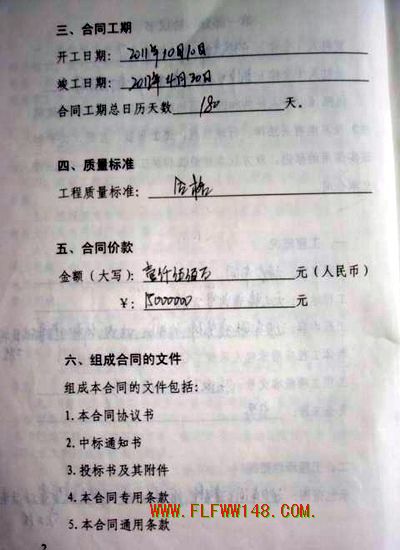 三、合同工期
开工日期：2011年10月10日
竣工日期：2012年4月30日
合同工期总日历天数 180 天。
四、质量标准
工程质量标准：合格
五、合同价款
金额（大写）：壹仟伍佰万 元（人民币）
￥：15000000 元
六、组成合同的文件
组成本合同的文件包括：
1.本合同协议书
2.中标通知书
3.投标书及其附件
4.本合同专用条款
5.本合同通用条款
WWW.FLFWW148.COM
2